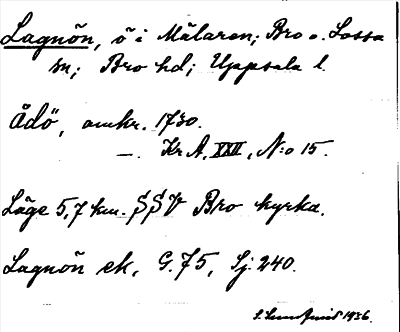 Lagnön, ö i Mälaren; Bro o. Lossa
sn; Bro hd; Uppsala l.
Ådö, omkr. 1730.
—. Kr A, XXII, N:o 15.
Läge 5,7 km. SSV Bro kyrka.
Lagnön ek, G. 75, Sj. 240.
1936.